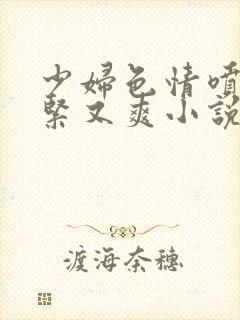 少婦色情噴
緊又爽小說
渡海奈穗